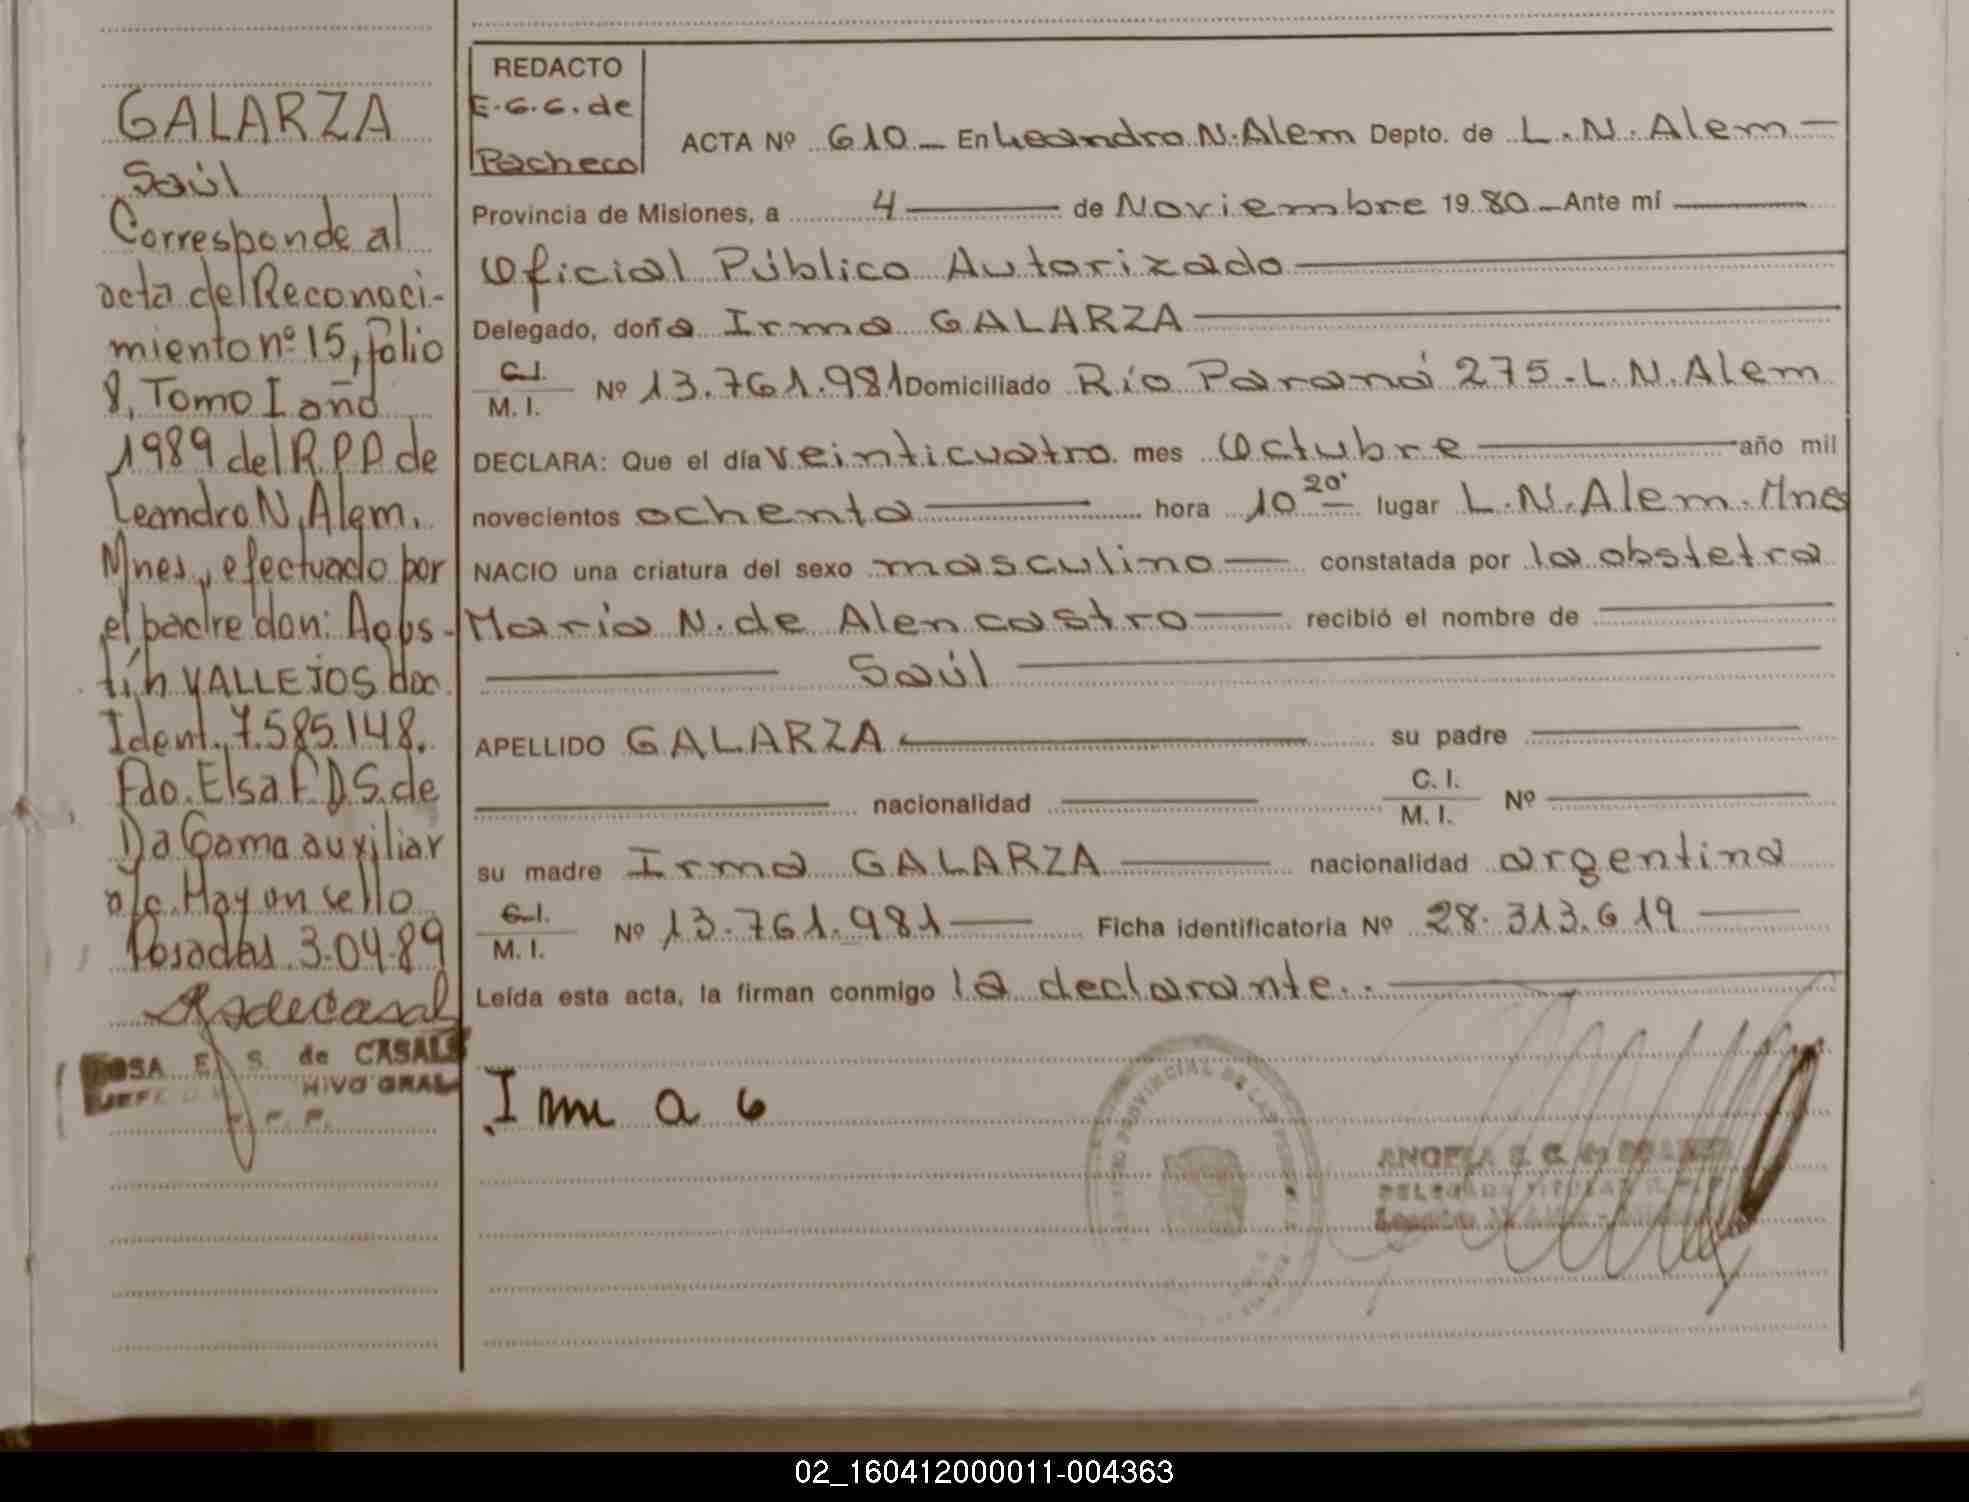 GALARZA
Saúl
Corresponde al
acta del Reconoci-
miento nº 15, folio
8, Tomo I año
1989 del R.P.P. de
Leandro N. Alem.
Mnes., efectuado por
el padre don: Agus-
tín VALLEJOS doc.
Ident. 7.585.148.
Fdo. Elsa F.D.S. de
Da Gama auxiliar
a/c. Hay un sello
Posadas 3-04-89
S. de CASALS
REDACTO
E.G.G. de
Pacheco
ACTA Nº 610 — En Leandro N. Alem Depto. de L. N. Alem —
Provincia de Misiones, a 4 — de Noviembre 19 80 — Ante mí —
Oficial Público Autorizado —
Delegado, doña Irma GALARZA —
C.I.
M. I. Nº 13.761.981 Domiciliado Río Paraná 275 - L. N. Alem
DECLARA: Que el día veinticuatro mes Octubre — año mil
novecientos ochenta — hora 10 20' lugar L. N. Alem. Mnes
NACIO una criatura del sexo masculino — constatada por la obstetra
María N. de Alencastro — recibió el nombre de —
— Saúl —
APELLIDO GALARZA — su padre —
— nacionalidad — C. I.
M. I. Nº —
su madre Irma GALARZA — nacionalidad argentina
C.I.
M. I. Nº 13.761.981 — Ficha identificatoria Nº 28.313.619 —
Leída esta acta, la firman conmigo la declarante.. —
PROVINCIAL DE LAS
ANGELA S. G. de
02_160412000011-004363